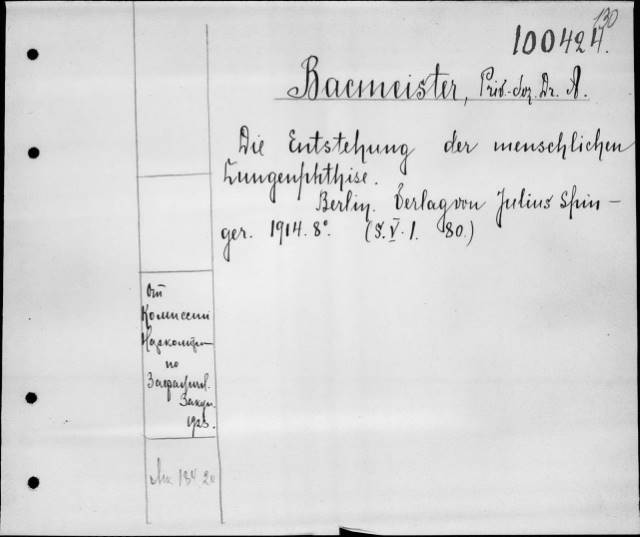 130
100424.
Bacmeister, Priv.-Doz. Dr. A.
Die Entstehung der menschlichen
Lungenphthise.
Berlin. Verlag von Julius Sprin-
ger. 1914. 8°. (S. V. 1. 80.)
От
Комиссии
по
Заграднич.
Закуп.
1923.